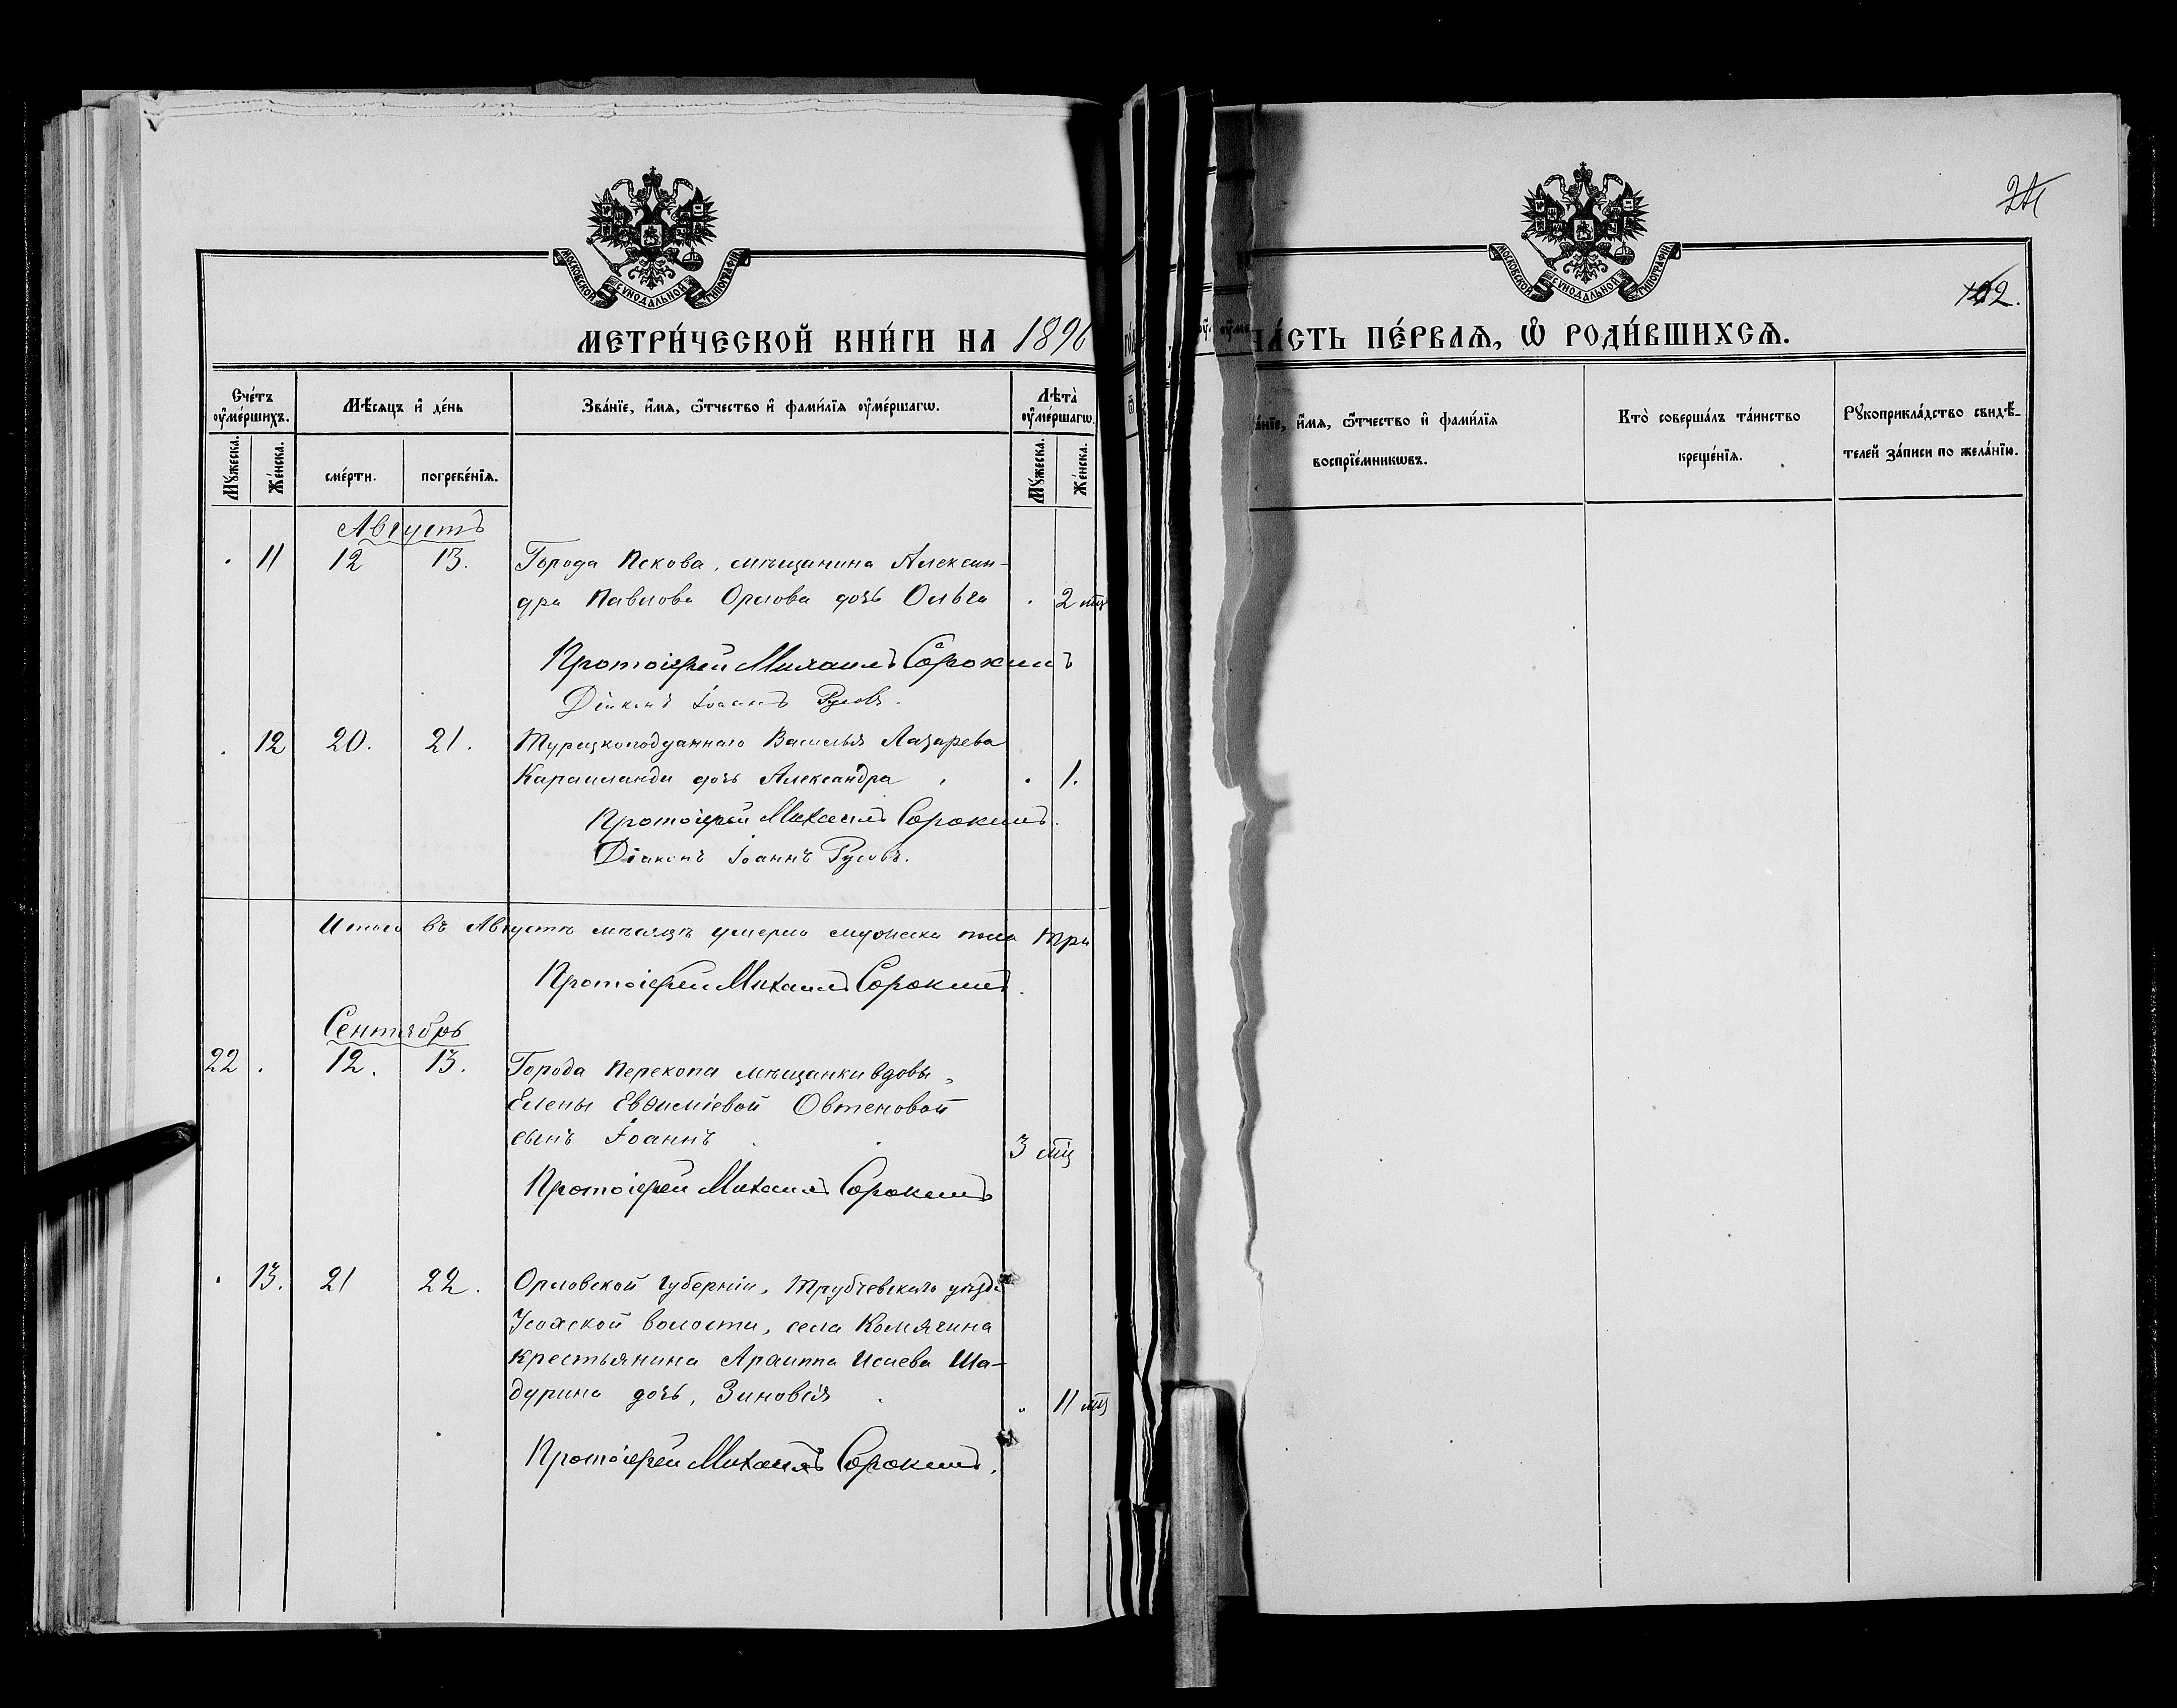 МОСКОВСКОЙ СѴНОДАЛЬНОЙ ТИПОГРАФІИ
МЕТРИ́ЧЕСКОЙ КНИ́ГИ НА 1896
Сче́тъ ᲂу҆ме́ршихъ.
Мѣ́сяцъ и҆ де́нь
Зва́нїе, и҆́мѧ, ѻ҆́тчество и҆ фами́лїѧ ᲂу҆ме́ршагѡ.
Лѣ́та ᲂу҆ме́ршагѡ.
Мꙋ́жеска.
Же́нска.
сме́рти.
погребе́нїѧ.
Мꙋ́жеска.
Же́нска.
Августъ
11 12 13. Города Пскова, мѣщанина Алексан-
дра Павлова Орлова дочь Ольга 2 мц
Протоіерей Михаилъ Сорокинъ
Діаконъ Іоаннъ Русовъ.
12 20. 21. Турецкоподданнаго Василья Лазарева
дочь Александра 1.
Протоіерей Михаилъ Сорокинъ.
Діаконъ Іоаннъ Русовъ.
Итого въ Августѣ мѣсяцѣ умерло мужска пола три
Протоіерей Михаилъ Сорокинъ.
Сентябрь
22 12. 13. Города Перекопа мѣщанки вдовы,
Елены Евѳиміевой Овтеновой
сынъ Іоаннъ 3 мц
Протоіерей Михаилъ Сорокинъ
13. 21 22. Орловской губерніи, Трубчевскаго уѣзда
Усохской волости, села Комягина
крестьянина Архиппа Исаева Ша-
дурина дочь, Зиновія 11 мц
Протоіерей Михаилъ Сорокинъ.
МОСКОВСКОЙ СѴНОДАЛЬНОЙ ТИПОГРАФІИ
102.
ЧА́СТЬ ПЕ́РВАѦ, Ѡ҆ РОДИ́ВШИХСѦ.
и҆́мѧ, ѻ҆́тчество и҆ фами́лїѧ
воспрїе́мникѡвъ.
Кто̀ соверша́лъ та́инство
креще́нїѧ.
Рꙋкоприкла́дство свидѣ́-
телей за́писи по жела́нїю.